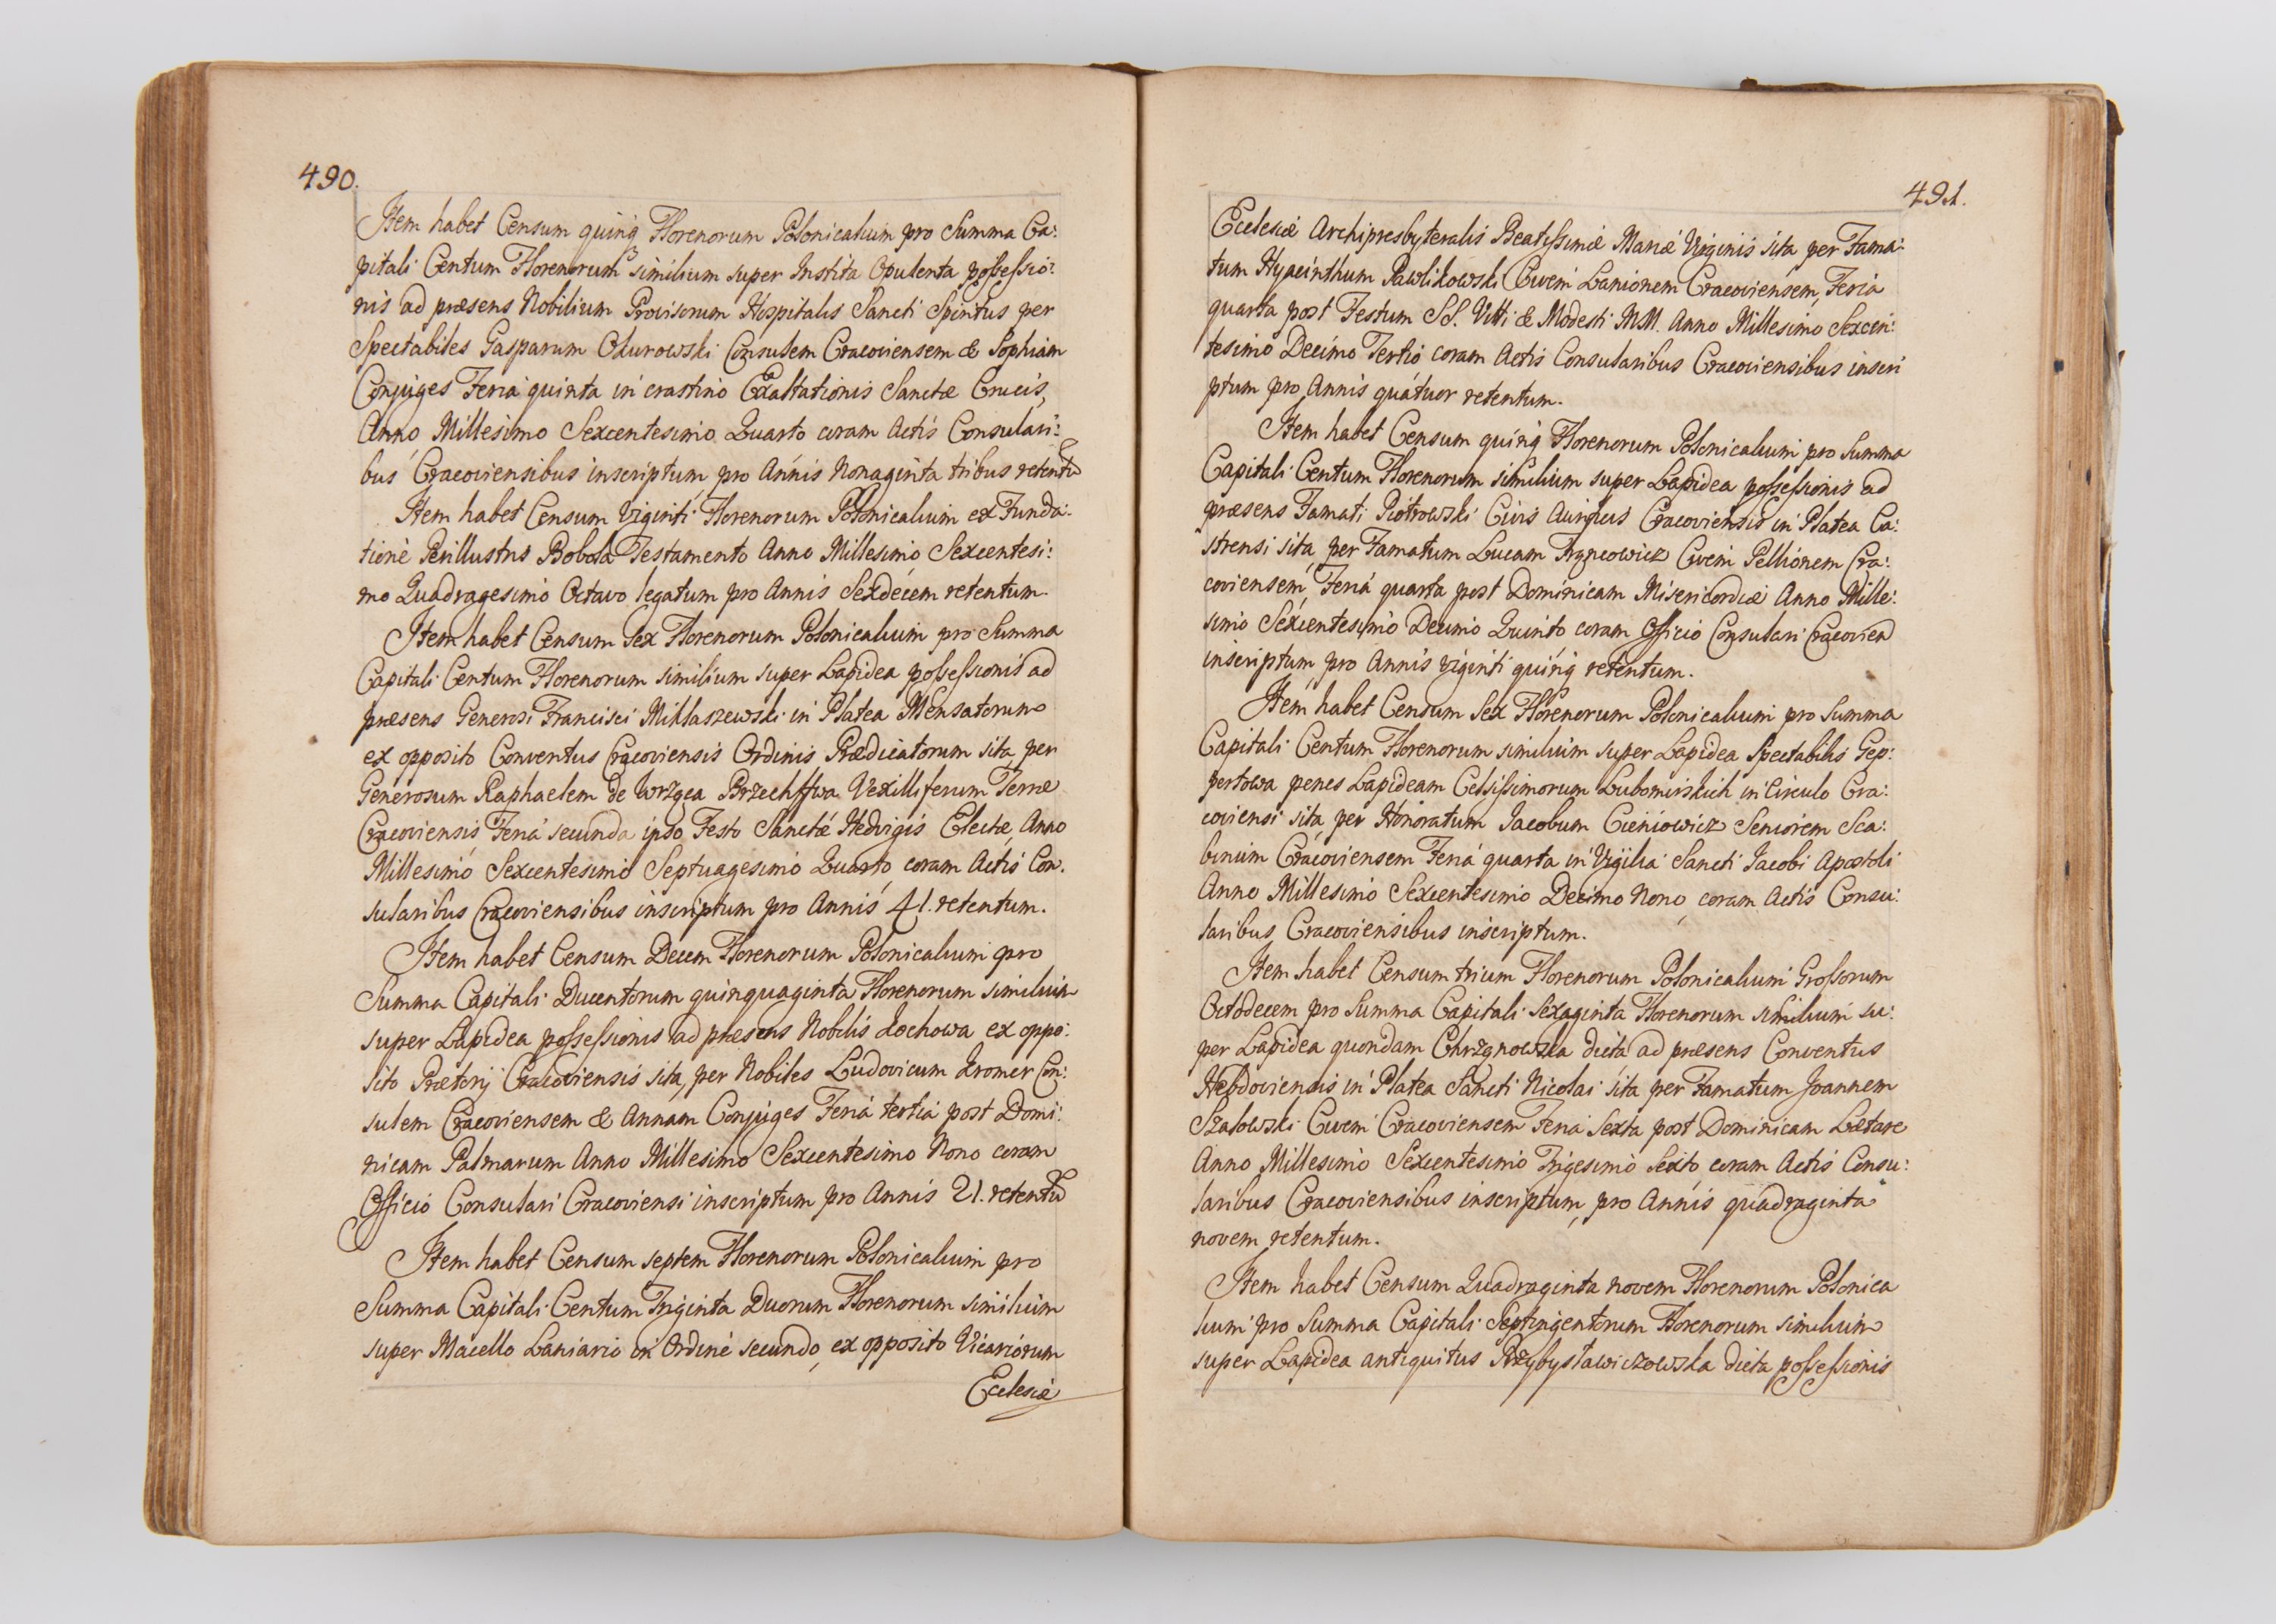 490.
Item habet Censum quinq Florenorum Polonicalium pro Summa Ca:
pitali Centum Florenorum similium super Instita Opulenta possessio:
nis ad præsens Nobilium Provisorum Hospitalis Sancti Spiritus per
Spectabiles Gasparum Okurowski Consulem Cracoviensem & Sophiam
Conjuges Feria quinta in crastino Exaltationis Sanctæ Crucis,
Anno Millesimo Sexcentesimo Quarto coram Actis Consulari:
bus Cracoviensibus inscriptum pro Annis Nonaginta tribus retentũ
Item habet Censum Viginti Florenorum Polonicalium ex Funda:
tione Perillustris Bobola Testamento Anno Millesimo Sexcentesi:
mo Quadragesimo Octavo legatum pro Annis Sexdecem retentum.
Item habet Censum Sex Florenorum Polonicalium pro Summa
Capitali Centum Florenorum similium super Lapidea possessionis ad
præsens Generosi Francisci Miklaszewski in Platea Mensatorum
ex opposito Conventus Cracoviensis Ordinis Prædicatorum sita, per
Generosum Raphaelem de Wrzgca Brzechffwa Vexilliferum Terræ
Cracoviensis, Feria secunda ipso Festo Sanctæ Hedvigis Electæ, Anno
Millesimo Sexcentesimo Septuagesimo Quarto, coram Actis Con.
sularibus Cracoviensibus inscriptum pro Annis 41. retentum.
Item habet Censum Decem Florenorum Polonicalium pro
Summa Capitali Ducentorum quinquaginta Florenorum similium
super Lapidea possessionis ad præsens Nobilis Lochowa ex oppo:
sito Prætorij Cracoviensis sita, per Nobiles Ludovicum Kromer Con:
sulem Cracoviensem & Annam Conjuges Feria tertia post Domi:
nicam Palmarum Anno Millesimo Sexcentesimo Nono coram
Officio Consulari Cracoviensi inscriptum pro Annis 21. retentũ
Item habet Censum septem Florenorum Polonicalium pro
Summa Capitali Centum Triginta Duorum Florenorum similium
super Macello Laniario in Ordine secundo, ex opposito Vicariorum
Ecclesiæ
491.
Ecclesiæ Archipresbyteralis Beatissimæ Mariæ Virginis sita, per Fama:
tum Hyacinthum Pawlikowski Civem Lanionem Cracoviensem, Feria
quarta post Festum SS. Viti & Modesti MM. Anno Millesimo Sexcen:
tesimo Decimo Tertio coram Actis Consularibus Cracoviensibus inscri
ptum pro Annis quatuor retentum.
Item habet Censum quinq Florenorum Polonicalium pro Summa
Capitali Centum Florenorum similium super Lapidea possessionis ad
præsens Famati Piotrowski Civis Cracoviensis in Platea Ca:
strensi sita, per Famatum Lucam Civem Pellionem Cra:
coviensem, Feria quarta post Dominicam Misericordiæ Anno Mille:
simo Sexcentesimo Decimo Quinto coram Officio Consulari Cracovien
inscriptum pro Annis viginti quinq retentum.
Item habet Censum Sex Florenorum Polonicalium pro Summa
Capitali Centum Florenorum similium super Lapidea Spectabilis Gep:
pertowa penes Lapideam Celsissimorum Lubomirskich in Circulo Cra:
coviensi sita, per Honoratum Jacobum Cieniowicz Seniorem Sca:
binum Cracoviensem Feria quarta in Vigilia Sancti Jacobi Apostoli
Anno Millesimo Sexcentesimo Decimo Nono, coram Actis Consu:
laribus Cracoviensibus inscriptum.
Item habet Censum trium Florenorum Polonicalium Grossorum
Octodecem pro Summa Capitali Sexaginta Florenorum similium su:
per Lapidea quondam Chrzgnowska dicta ad præsens Conventus
Hebdoviensis in Platea Sancti Nicolai sita per Famatum Joannem
Szalowski Civem Cracoviensem Feria Sexta post Dominicam Lætare
Anno Millesimo Sexcentesimo Trigesimo Sexto, coram Actis Consu:
laribus Cracoviensibus inscriptum, pro Annis quadraginta
novem retentum.
Item habet Censum Quadraginta novem Florenorum Polonica
lium pro Summa Capitali Septingentorum Florenorum similium
super Lapidea antiquitus Przybysławiczowska dicta possessionis